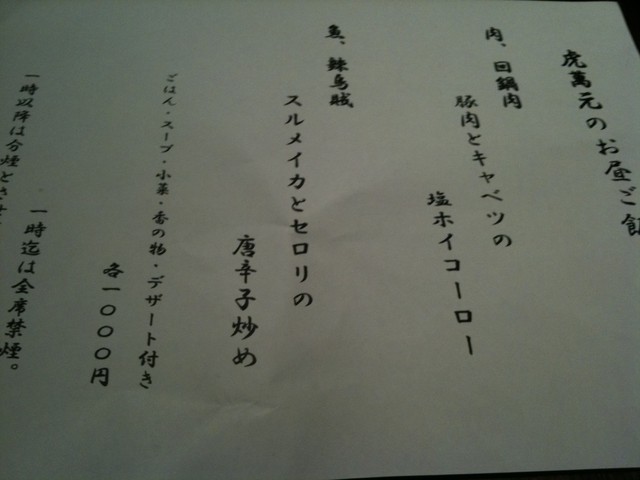 虎萬元のお昼ご飯
肉、回鍋肉
豚肉とキャベツの
塩ホイコーロー
魚、辣烏賊
スルメイカとセロリの
唐辛子炒め
ごはん・スープ・小菜・香の物・デザート付き
各一〇〇〇円
一時迄は全席禁煙。
一時以降は分煙とさせ